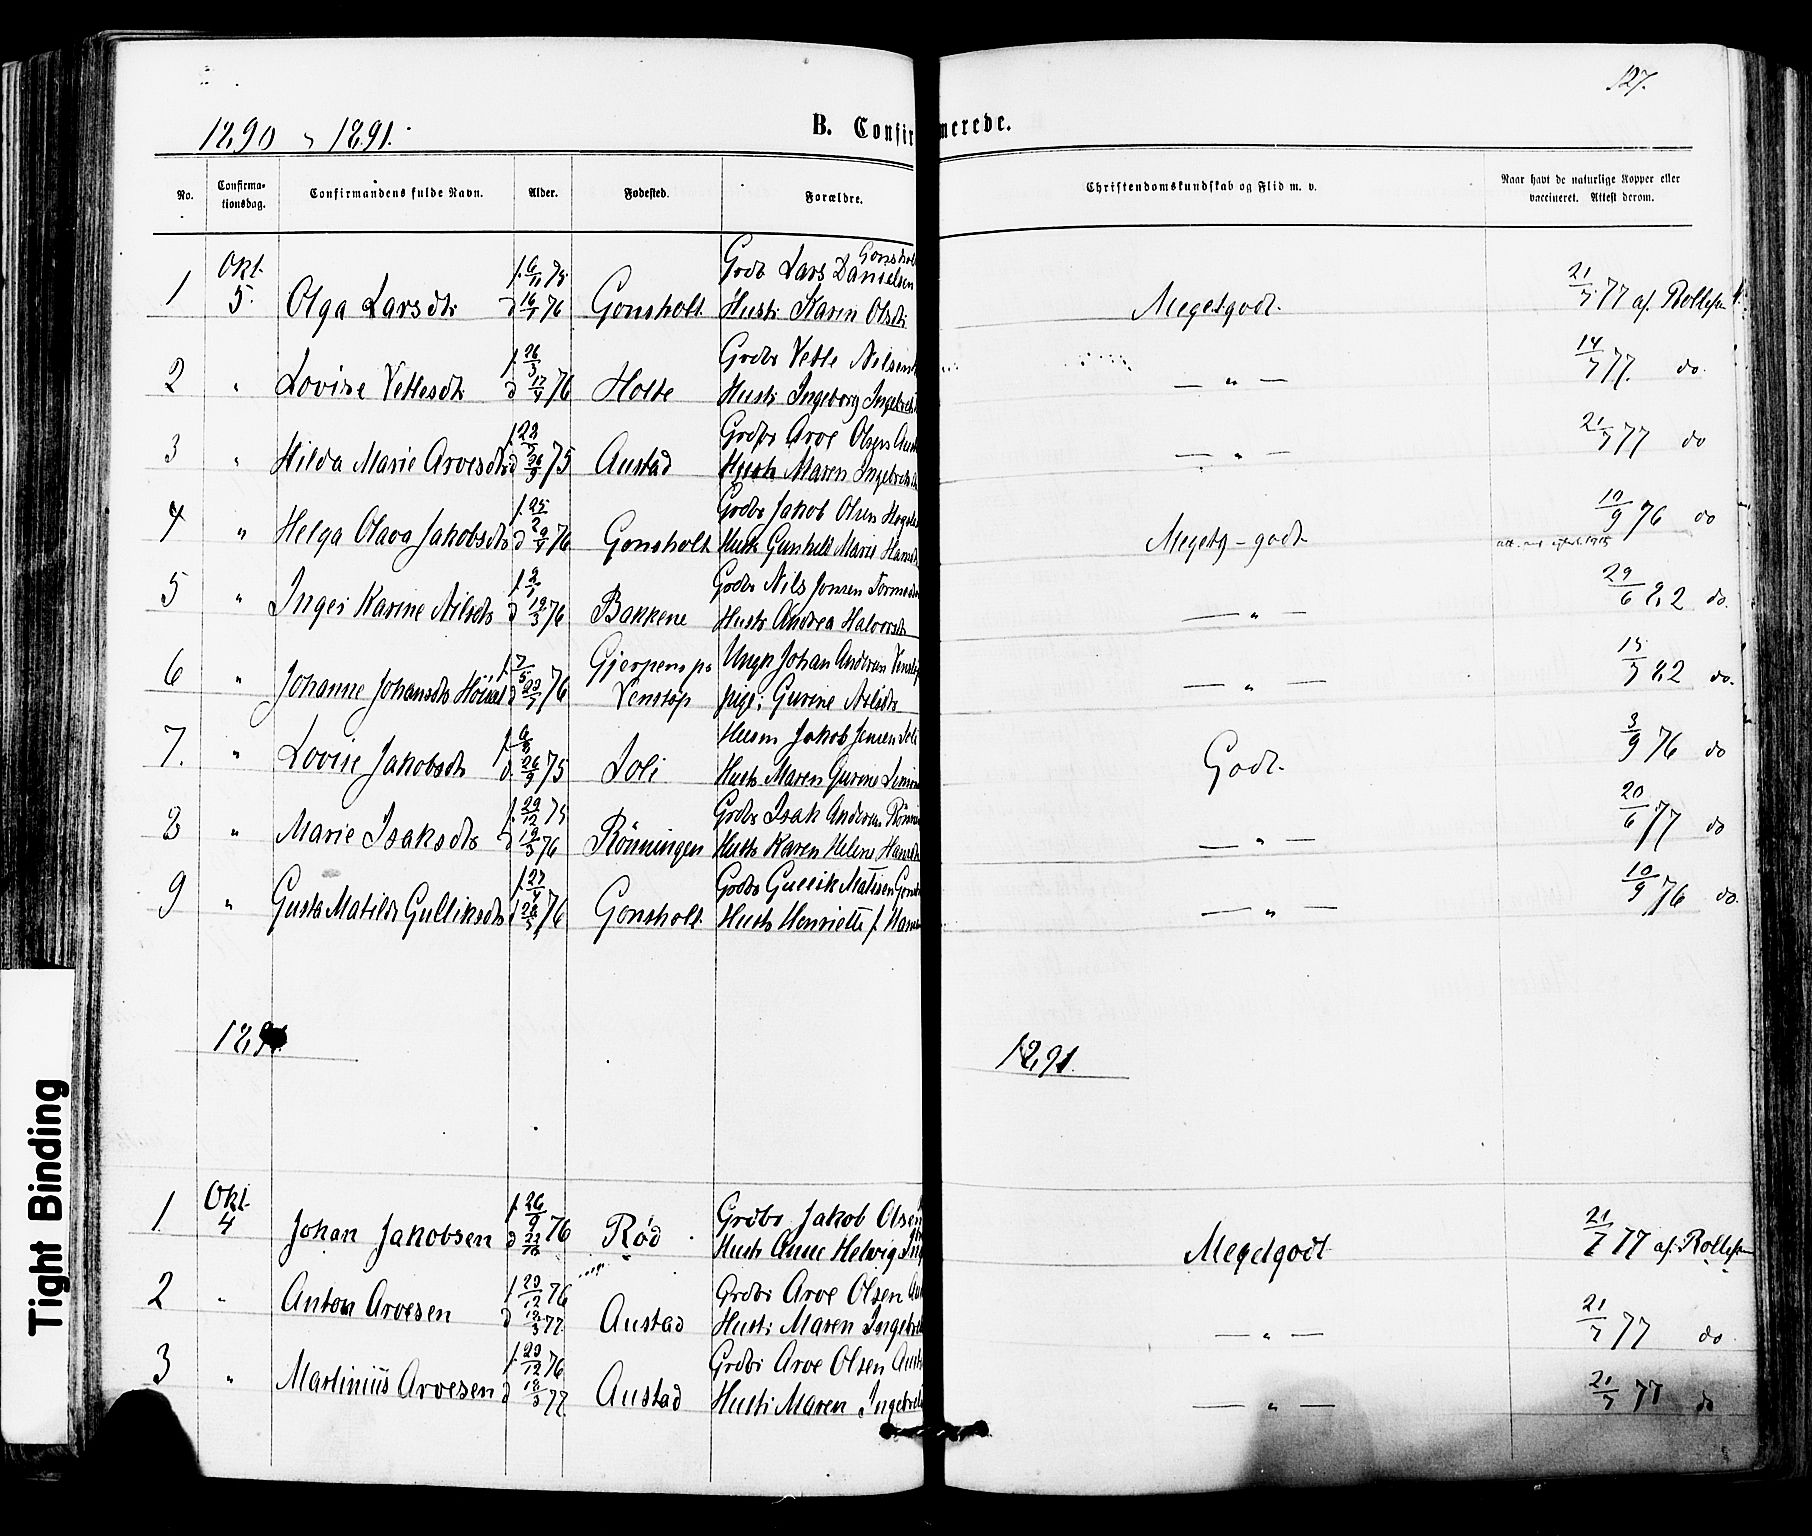 127.
1890 - 1891.
B. Confirmerede.
No.
Confirma-
tionsdag.
Confirmandens fulde Navn.
Alder.
Fødested.
Forældre.
Christendomskundskab og Flid m. v.
Naar havt de naturlige Kopper eller
vaccineret. Attest derom.
1 Okt. 5. Olga Larsdtr f. 6/11 75 d 16/1 76 Gonsholt Grdbr Lars Danielsen Gonsholt Hustr Karen Olsdtr Megetgodt. 21/7 77 af Rollefsen
2 " Lovise Vetlesdtr f. 26/3 d 17/4 76 Holte Grdbr Vetle Nilsen Hustr Ingeborg Ingebretsd — " — 14/7 77. do.
3 " Hilda Marie Arvesdtr f. 22/7 d 26/9 75 Austad Grdbr Arve Olsen Aust Hustr Maren Ingebretsd — " — 21/7 77 do
4 " Helga Olava Jakobsdtr f. 25/2 d 9/4 76 Gonsholt Grdbr Jakob Olsen Hustr Gunhild Marie Hansd Megetg - godt 10/9 76 do
5 " Inger Karine Nilsdtr f. 2/1 d 19/3 76 Bakkene Grdbr Nils Jonsen Hustr Andrea Halvorsdtr — " — 29/6 82 do.
6 " Johanne Johansdtr f. 7/5 d 22/7 76 Gjerpens ps Venstøp Ungk Johan Andersen Venstøp pige: Gurine Nilsdtr — " — 15/7 82 do.
7. " Lovise Jakobsdtr f. 6/8 d. 26/9 75 Joli Husm Jakob Jensen Joli Hustr Maren Gurine Simons Godt. 3/9 76 do
8 " Marie Isaksdtr f. 29/12 75 d 19/3 76 Rönningen Grdbr Isak Andersen Rönnin Hustr Karen Helene Hansdt — " — 20/6 77 do
9 " Gusta Matilde Gulliksdtr f. 27/4 d 28/5 76 Gonsholt Grdbr Gullik Matisen Gons Hustr Henriette f. Hansen — " — 10/9 76 do.
1891.
1891.
1 Okt. 4 Johan Jakobsen f. 26/9 d 22/10 76 Rød Grdbr Jakob Olsen Hustr Anne Helvig Ing Megetgodt 21/7 77 af. Rollefsen
2 " Anton Arvesen f. 29/12 76 d 18/3 77. Austad Grdbr Arve Olsen Aus Hustr Maren Ingebrets — " — 21/7 77 do
3 " Martinius Arvesen f. 29/12 76 d 18/3 77. Austad Grdbr Arve Olsen Aust Hustr Maren Ingebrets — " — 21/7 77 do
Tight Binding